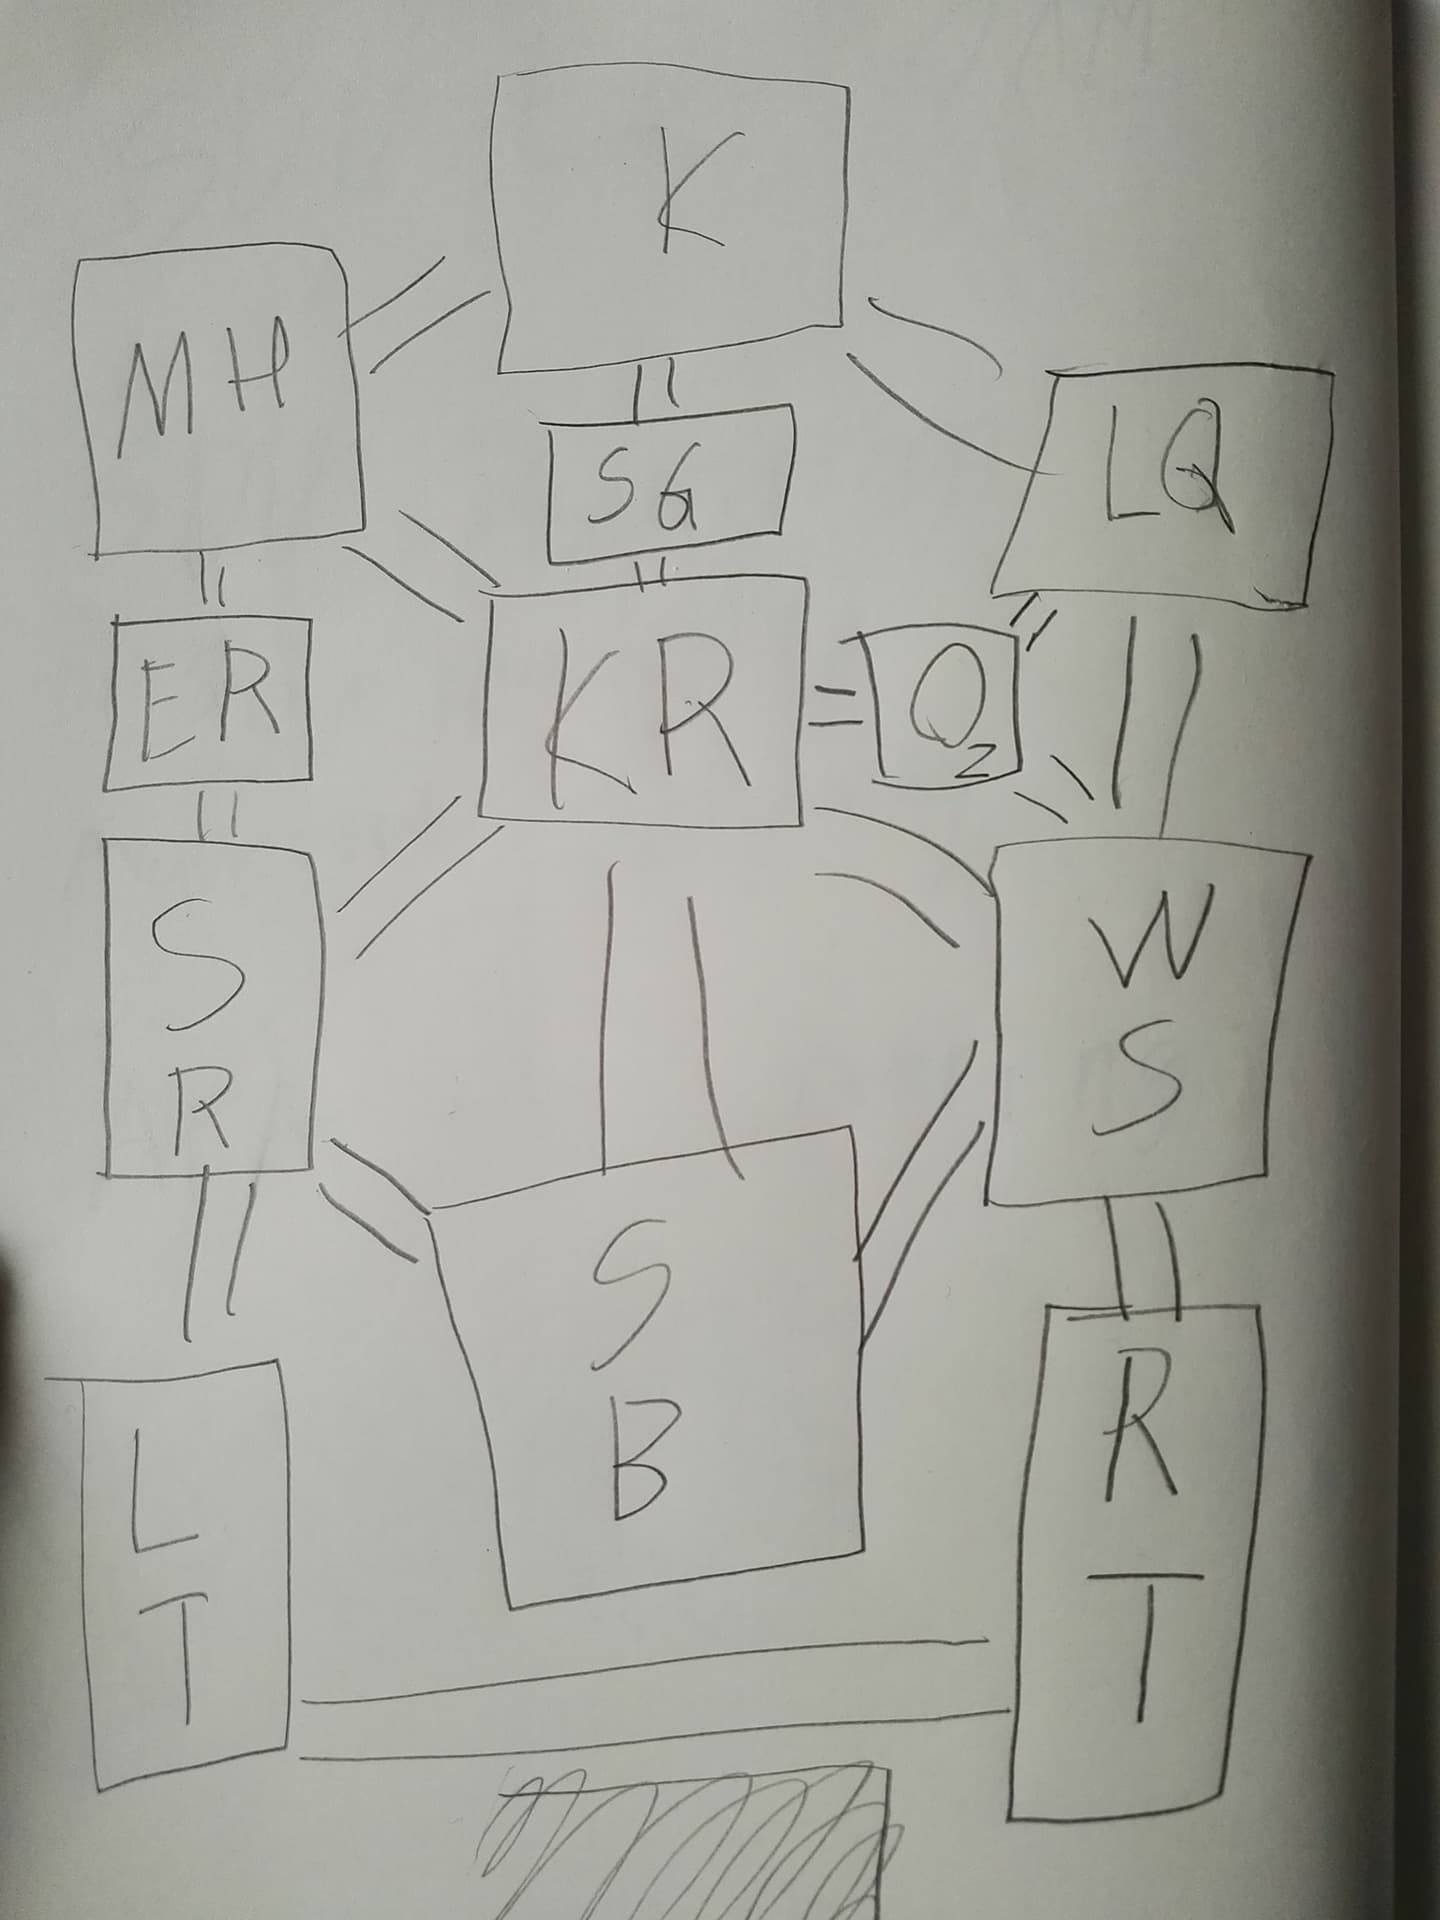 K
MH
SG
LQ
ER
KR
O2
S
R
W
S
S
B
L
T
R
T